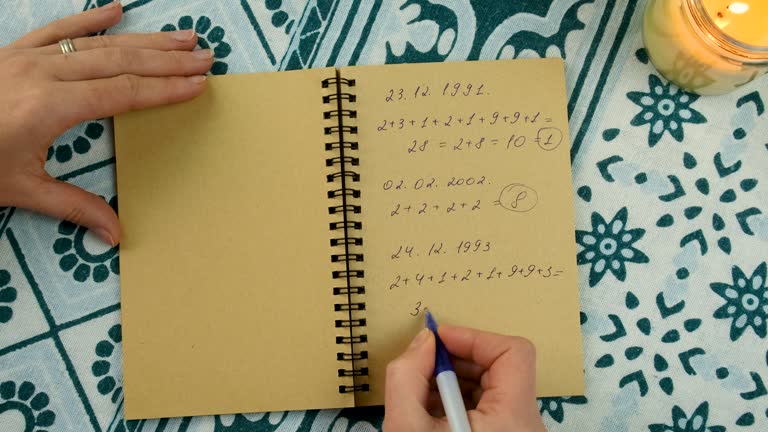 23.12.1991.
2+3+1+2+1+9+9+1=
28 = 2+8 = 10 = 1
02.02.2002.
2+2+2+2 = 8
24.12.1993
2+4+1+2+1+9+9+3=
3